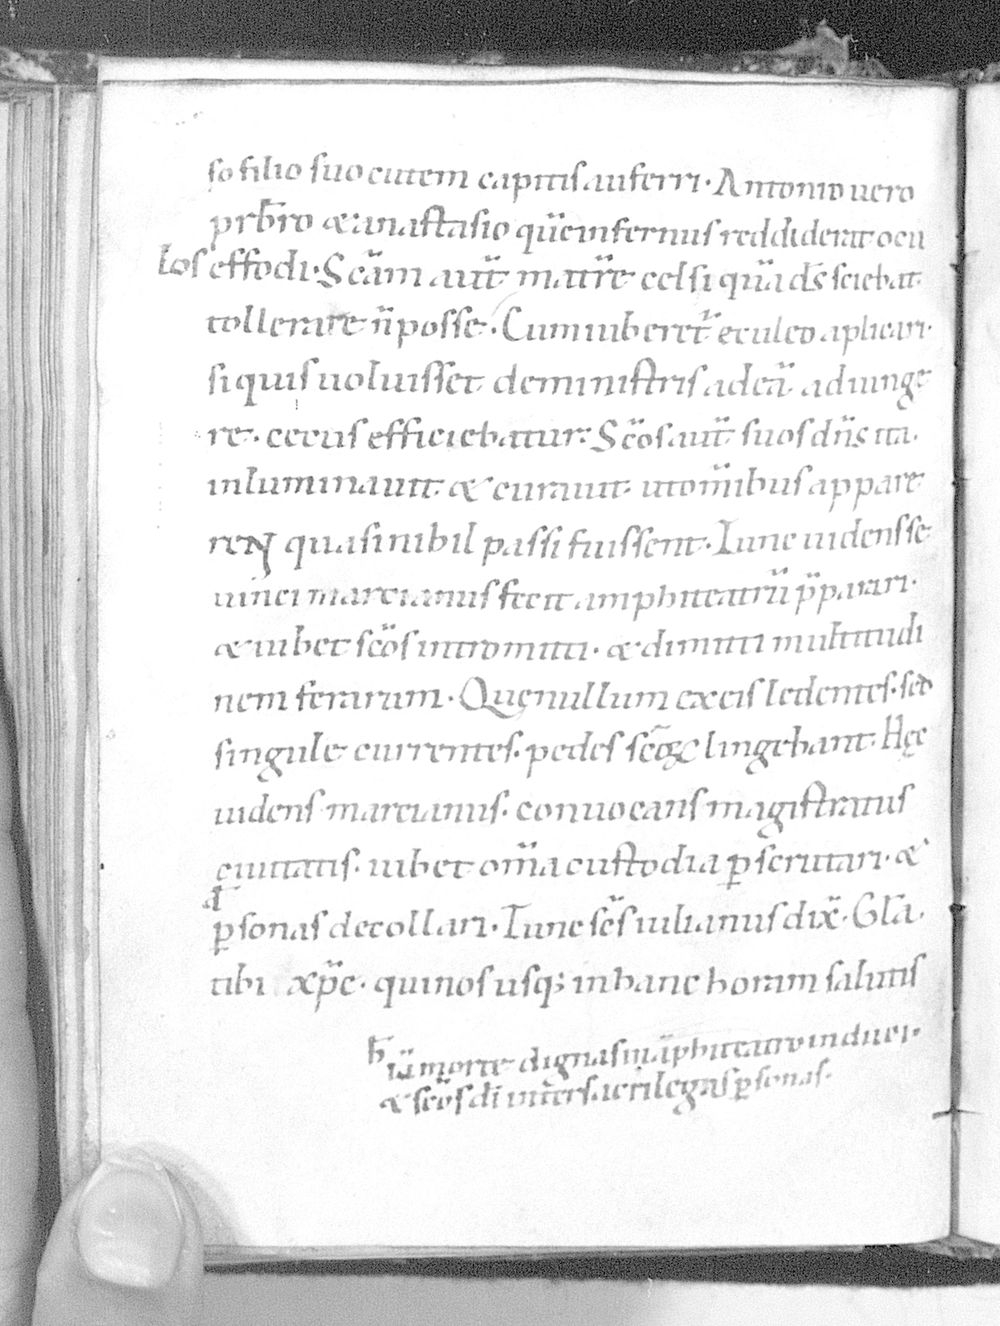 so filio suo cutem capitis auferri. Antonio uero
prb̄ro & anastasio quē infernus reddiderat ocu
los effodi. Scām aut̄ mat̄re celsi quā ds̄ sciebat
tollerare n̄ posse. Cum iuberet̄ eculeo aplicari.
si quis uoluisset deministris ad eā adiunge
re. cecus efficiebatur. Sc̄os aut̄ suos dn̄s ita
inluminauit & curauit ut om̄ibus appare
reNt quasi nihil passi fuissent. Tunc uidens se
uinci marcianus fecit amphiteatrū p̄parari.
& iubet sc̄os intromitti. & dimitti multitudi
nem ferarum. Quę nullum ex eis ledentes. sed
singule currentes. pedes sc̄oꝝ lingebant. Hęc
uidens marcianus. conuocans magistratus
ciuitatis. iubet om̄a custodia ꝑscrutari. &
đ
ꝑsonas decollari. Tunc sc̄s iulianus dix̄. Glā
tibi xp̄e. qui nos usq; in hanc horam salutis
h̄ iā morte dignas in āphiteatro induci.
& sc̄os dī inter sacrilegas ꝑsonas.